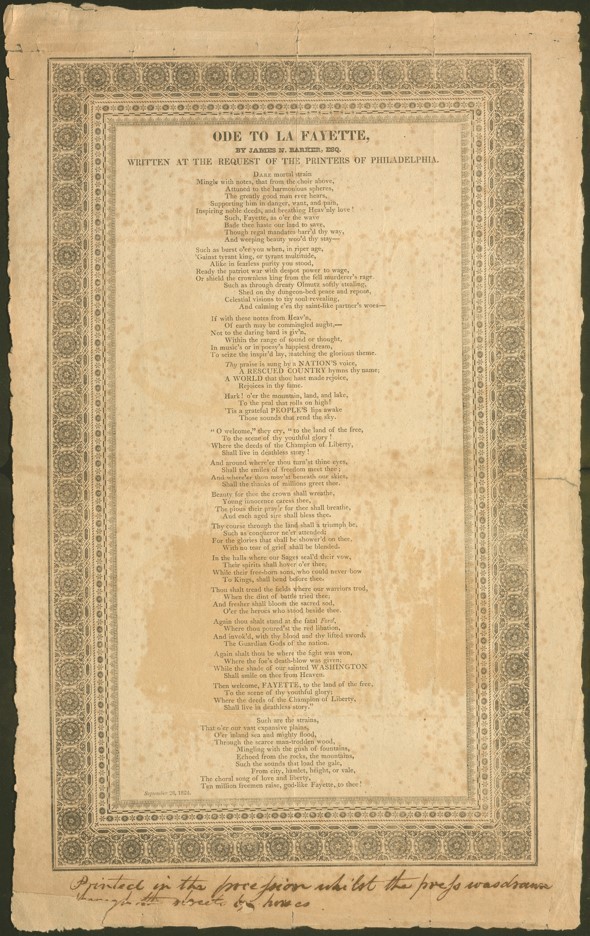 ODE TO LA FAYETTE,
BY JAMES N. BARKER, ESQ.
WRITTEN AT THE REQUEST OF THE PRINTERS OF PHILADELPHIA.
DARE mortal strain
Mingle with notes, that from the choir above,
Attuned to the harmonious spheres,
The greatly good man ever hears,
Supporting him in danger, want, and pain,
Inspiring noble deeds, and breathing Heav'nly love!
Such, Fayette, as o'er the wave
Bade thee haste our land to save,
Though regal mandates barr'd thy way,
And weeping beauty woo'd thy stay—
Such as burst o'er you when, in riper age,
'Gainst tyrant king, or tyrant multitude,
Alike in fearless purity you stood,
Ready the patriot war with despot power to wage,
Or shield the crownless king from the fell murderer's rage.
Such as through dreary Olmutz softly stealing,
Shed on thy dungeon-bed peace and repose,
Celestial visions to thy soul revealing,
And calming e'en thy saint-like partner's woes—
If with these notes from Heav'n,
Of earth may be commingled aught,—
Not to the daring hand is giv'n,
Within the range of sound or thought,
In music's or in poesy's happiest dream,
To seize the inspir'd lay, matching the glorious theme.
Thy praise is sung by a NATION'S voice,
A RESCUED COUNTRY hymns thy name;
A WORLD that thou hast made rejoice,
Rejoices in thy fame.
Hark! o'er the mountain, land, and lake,
To the peal that rolls on high!
'Tis a grateful PEOPLE'S lips awake
Those sounds that rend the sky.
"O welcome," they cry, "to the land of the free,
To the scene of thy youthful glory!
Where the deeds of the Champion of Liberty,
Shall live in deathless story!
And around where'er thou turn'st thine eyes,
Shall the smiles of freedom meet thee;
And where'er thou mov'st beneath our skies,
Shall the thanks of millions greet thee.
Beauty for thee the crown shall wreathe,
Young innocence caress thee,
The pious their pray'r for thee shall breathe,
And each aged sire shall bless thee.
Thy course through the land shall a triumph be,
Such as conqueror ne'er attended;
For the glories that shall be shower'd on thee,
With no tear of grief shall be blended.
In the halls where our Sages seal'd their vow,
Their spirits shall hover o'er thee;
While their free-born sons, who could never bow
To Kings, shall bend before thee.
Thou shalt tread the fields where our warriors trod,
When the dint of battle tried thee,
And fresher shall bloom the sacred sod,
O'er the heroes who stood beside thee.
Again thou shalt stand at the fatal Ford,
Where thou poured'st the red libation,
And invok'd, with thy blood and thy lifted sword,
The Guardian Gods of the nation.
Again shalt thou be where the fight was won,
Where the foe's death-blow was given;
While the shade of our sainted WASHINGTON
Shall smile on thee from Heaven.
Then welcome, FAYETTE, to the land of the free,
To the scene of thy youthful glory;
Where the deeds of the Champion of Liberty,
Shall live in deathless story."
Such are the strains,
That o'er our vast expansive plains,
O'er inland sea and mighty flood,
Through the scarce man-trodden wood,
Mingling with the gush of fountains,
Echoed from the rocks, the mountains,
Such the sounds that load the gale,
From city, hamlet, height, or vale,
The choral song of love and liberty,
Ten million freemen raise, god-like Fayette, to thee!
September 28, 1824.
Printed in the procession whilst the press was drawn
through the streets by horses